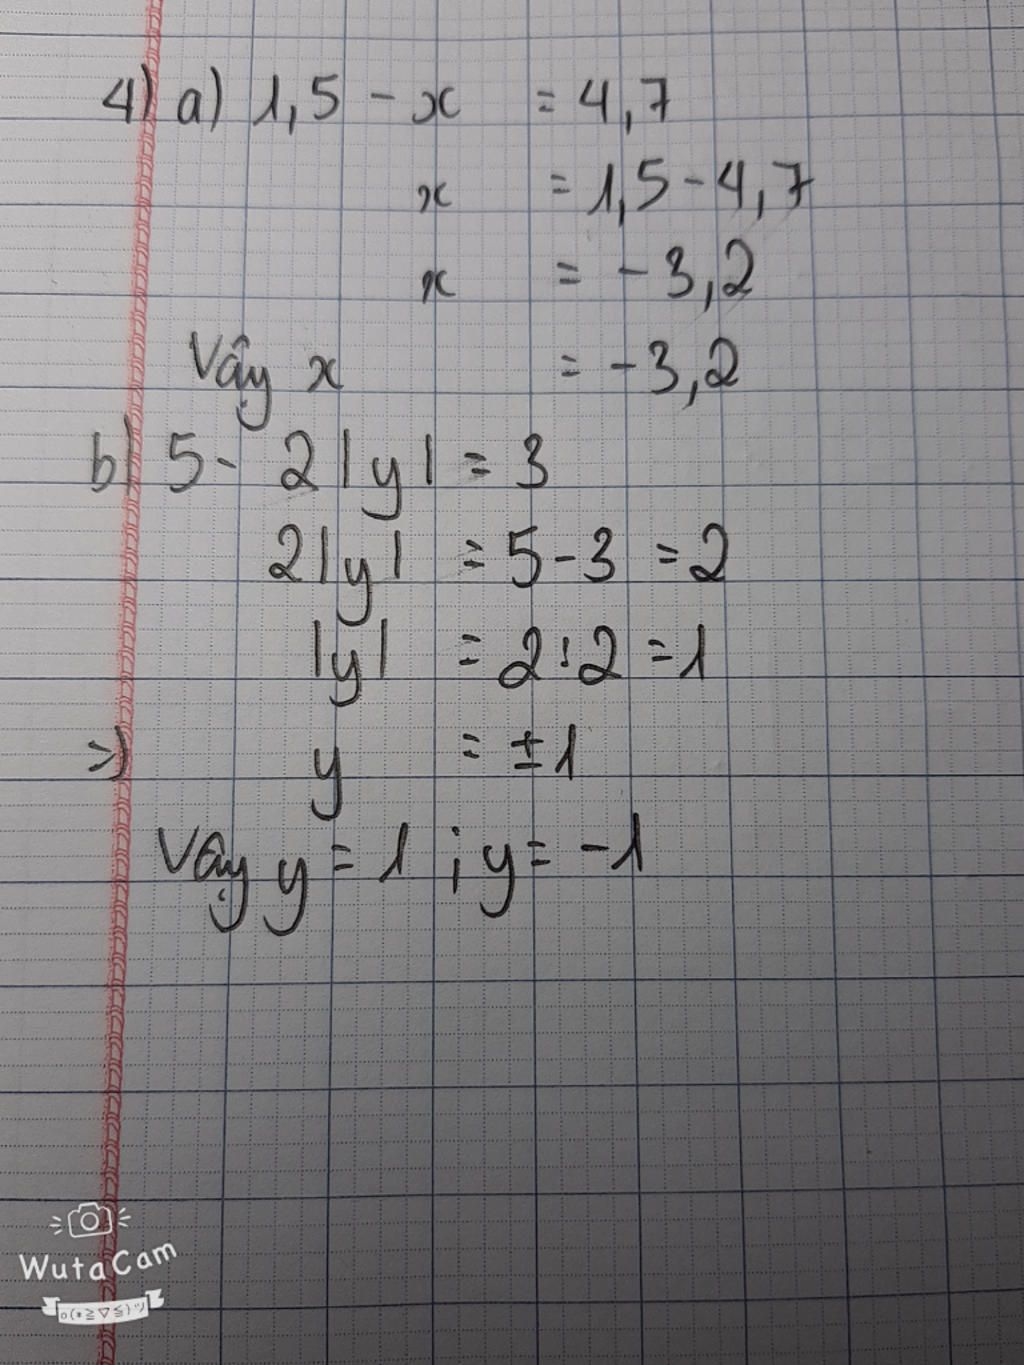 4) a) 1,5 - x = 4,7
x = 1,5 - 4,7
x = -3,2
Vậy x = -3,2
b) 5 - 2|y| = 3
2|y| = 5 - 3 = 2
|y| = 2 : 2 = 1
=> y = ±1
Vậy y = 1 ; y = -1
WutaCam
o(*≧▽≦)ツ